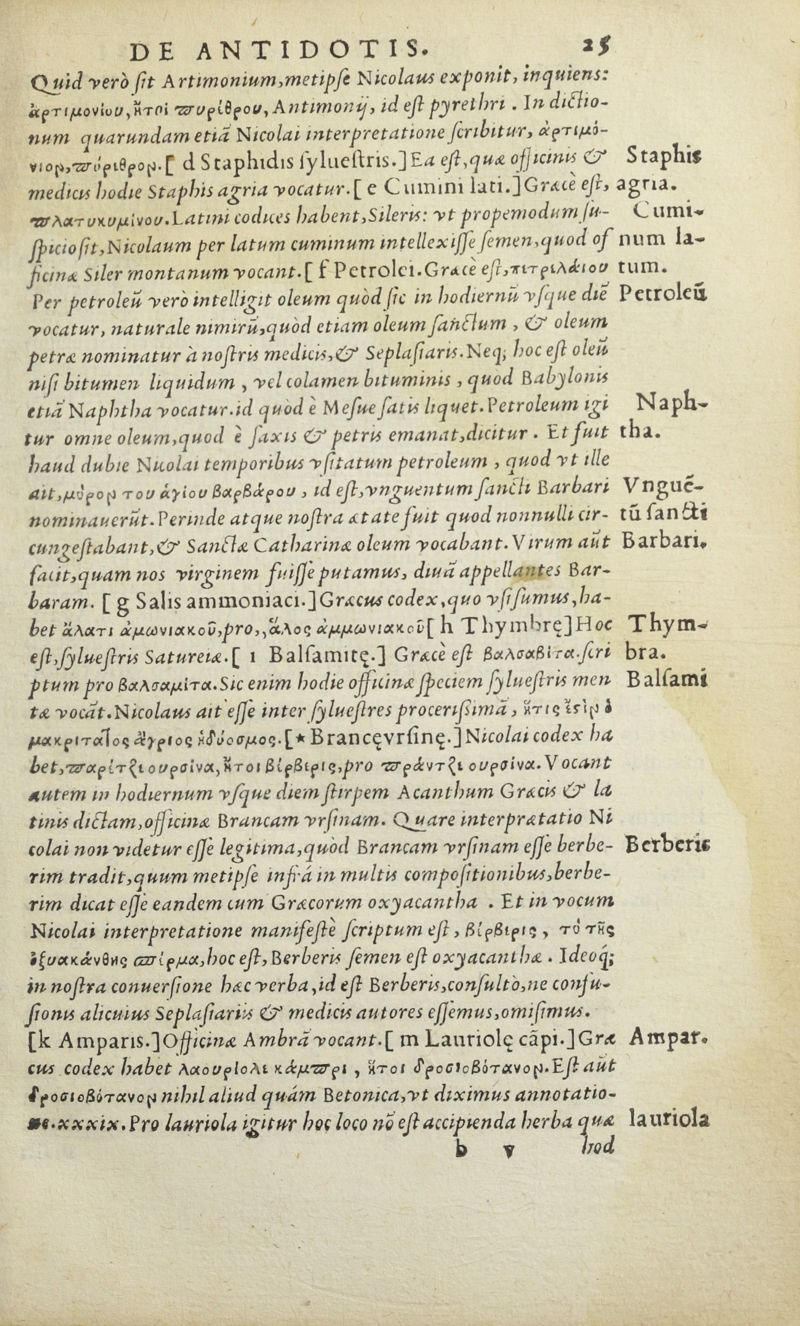 DE ANTIDOTIS. 25
Quid verò sit Artimonium, metipse Nicolaus exponit, inquiens:
ἀρτιμονίου, ἤτοι πυρίθρου, Antimonij, id est pyrethri. In dictio-
num quarundam etiā Nicolai interpretatione scribitur, ἀρτιμό-
νιον, πύριθρον. [ d Staphidis syluestris.] Ea est, quæ officinis & Staphis
medicis hodie Staphis agria vocatur. [ e Cumini lati.] Græcè est, agria.
πλατυκυμίνου. Latini codices habent, Sileris: vt propemodum su- Cumi-
spicio sit, Nicolaum per latum cuminum intellexisse semen, quod of num la-
ficinæ Siler montanum vocant. [ f Petrolei. Græcè est, πιτρελάιου tum.
Per petroleū verò intelligit oleum quòd sic in hodiernū vsque diē Petroleū
vocatur, naturale nimirū, quòd etiam oleum sanctum, & oleum
petræ nominatur à nostris medicis, & Seplasiaris. Neq; hoc est oleū
nisi bitumen liquidum, vel colamen bituminis, quod Babylonis
etiā Naphtha vocatur. id quòd è Mesue satis liquet. Petroleum igi Naph-
tur omne oleum, quod è saxis & petris emanat, dicitur. Et fuit tha.
haud dubie Nicolai temporibus vsitatum petroleum, quod vt ille
ait, μύρον του ἁγίου βαρβάρου, id est, vnguentum sancti Barbari Vnguē-
nominauerūt. Perinde atque nostra ætate fuit quod nonnulli cir- tū sancti
cungestabant, & Sanctæ Catharinæ oleum vocabant. Virum aūt Barbari.
facit, quam nos virginem fuisse putamus, diuā appellantes Bar-
baram. [ g Salis ammoniaci.] Græcus codex, quo vsi sumus, ha-
bet ἅλατι ἀμωνιακοῦ, pro, ἅλος ἀμμωνιακοῦ [ h Thymbrę] Hoc Thym-
est, syluestris Satureiæ. [ i Balsamitę.] Græcè est βαλσαβίτα. scri bra.
ptum pro βαλσαμίτα. Sic enim hodie officinæ speciem syluestris men Balsami
tæ vocāt. Nicolaus ait esse inter syluestres procerissimā, ἥτις ἐστὶν ὁ
μακριτατος ἄγριος ἡδύοσμος. [* Brancęvrsinę.] Nicolai codex ha
bet, παρίτζι ουρσίνα, ἤτοι βίρβιρις, pro πράντζι ουρσίνα. Vocant
autem in hodiernum vsque diem stirpem Acanthum Græcis & la
tinis dictam, officinæ Brancam vrsinam. Quare interprætatio Ni
colai non videtur esse legitima, quòd Brancam vrsinam esse berbe- Berberis
rim tradit, quum metipse infrà in multis compositionibus, berbe-
rim dicat esse eandem cum Græcorum oxyacantha. Et in vocum
Nicolai interpretatione manifestè scriptum est, βίρβιρις, τὸ τῆς
ὀξυακάνθης σπίρμα, hoc est, Berberis semen est oxyacanthæ. Ideoq;
in nostra conuersione hæc verba, id est Berberis, consultò, ne confu-
sionis alicuius Seplasiariis & medicis autores essemus, omisimus.
[k Amparis.] Officinæ Ambrā vocant. [ m Lauriolę cāpi.] Græ Ampar.
cus codex habet λαουριολι κάμπρι, ἤτοι δροσιοβότανον. Est aūt
δροσιοβότανον nihil aliud quàm Betonica, vt diximus annotatio-
ne. xxxix. Pro lauriola igitur hoc loco nō est accipienda herba quæ lauriola
b v hod